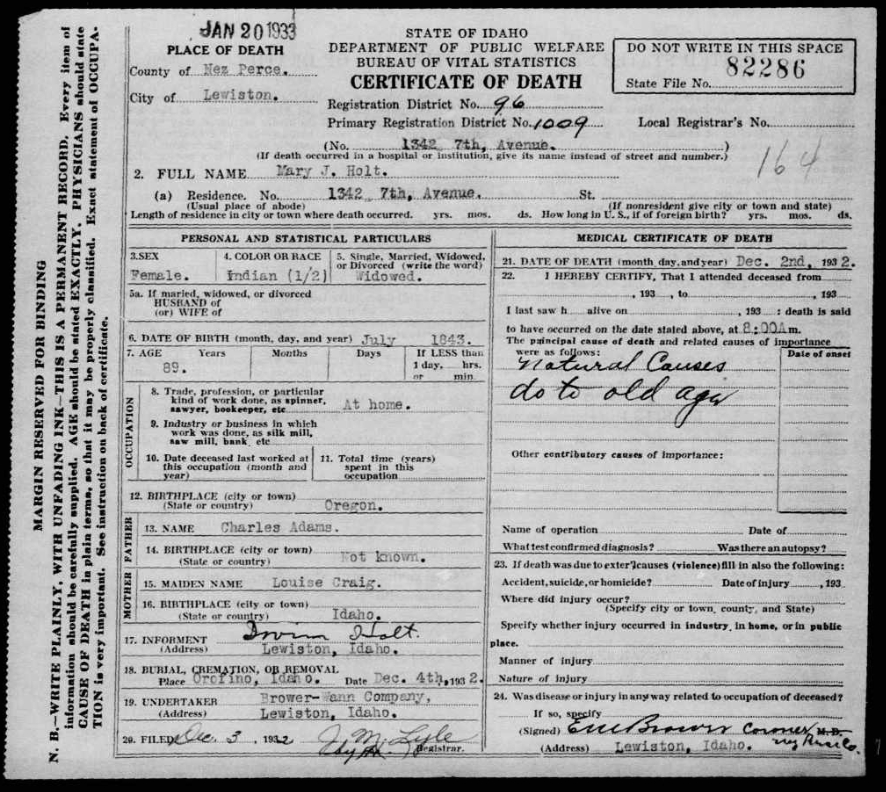 JAN 20 1933
PLACE OF DEATH
County of Nez Perce.
City of Lewiston.
STATE OF IDAHO
DEPARTMENT OF PUBLIC WELFARE
BUREAU OF VITAL STATISTICS
CERTIFICATE OF DEATH
DO NOT WRITE IN THIS SPACE
82286
State File No.
Registration District No. 96
Primary Registration District No. 1009 Local Registrar's No.
(No. 1342 7th, Avenue. )
(If death occurred in a hospital or institution, give its name instead of street and number.)
164
2. FULL NAME Mary J. Holt.
(a) Residence. No. 1342 7th, Avenue. St.
(Usual place of abode) (If nonresident give city or town and state)
Length of residence in city or town where death occurred. yrs. mos. ds. How long in U. S., if of foreign birth? yrs. mos. ds.
PERSONAL AND STATISTICAL PARTICULARS
3.SEX
Female.
4. COLOR OR RACE
Indian (1/2)
5. Single, Married, Widowed,
or Divorced (write the word)
Widowed.
5a. If maried, widowed, or divorced
HUSBAND of
(or) WIFE of
6. DATE OF BIRTH (month, day, and year) July 1843.
7. AGE Years Months Days If LESS than
1 day, hrs.
or min
89.
OCCUPATION
8. Trade, profession, or particular
kind of work done, as spinner,
sawyer, bookeeper, etc At home.
9. Industry or business in which
work was done, as silk mill,
saw mill, bank, etc
10. Date deceased last worked at
this occupation (month and
year)
11. Total time (years)
spent in this
occupation
12. BIRTHPLACE (city or town)
(State or country) Oregon.
FATHER
13. NAME Charles Adams.
14. BIRTHPLACE (city or town)
(State or country) Not known.
MOTHER
15. MAIDEN NAME Louise Craig.
16. BIRTHPLACE (city or town)
(State or country) Idaho.
17. INFORMENT Holt.
(Address) Lewiston, Idaho.
18. BURIAL, CREMATION, OR REMOVAL
Place Orofino, Idaho. Date Dec. 4th, 1932.
19. UNDERTAKER Brower-Wann Company,
(Address) Lewiston, Idaho.
20. FILED Dec. 3, 1932 Lyle
Registrar.
MEDICAL CERTIFICATE OF DEATH
21. DATE OF DEATH (month, day, and year) Dec. 2nd, 1932.
22. I HEREBY CERTIFY, That I attended deceased from
, 193 , to , 193
I last saw h alive on , 193 : death is said
to have occurred on the date stated above, at 8:00A m.
The principal cause of death and related causes of importance
were as follows: Date of onset
Natural Causes
do to old age
Other contributory causes of importance:
Name of operation Date of
What test confirmed diagnosis? Was there an autopsy?
23. If death was due to exter'l causes (violence) fill in also the following:
Accident, suicide, or homicide? Date of injury , 193
Where did injury occur?
(Specify city or town, county, and State)
Specify whether injury occurred in industry, in home, or in public
place.
Manner of injury
Nature of injury
24. Was disease or injury in any way related to occupation of deceased?
If so, specify
(Signed) Brower Coroner M.D.
(Address) Lewiston, Idaho.
MARGIN RESERVED FOR BINDING
N. B.—WRITE PLAINLY, WITH UNFADING INK—THIS IS A PERMANENT RECORD. Every item of
information should be carefully supplied. AGE should be stated EXACTLY. PHYSICIANS should state
CAUSE OF DEATH in plain terms, so that it may be properly classified. Exact statement of OCCUPA-
TION is very important. See instruction on back of certificate.